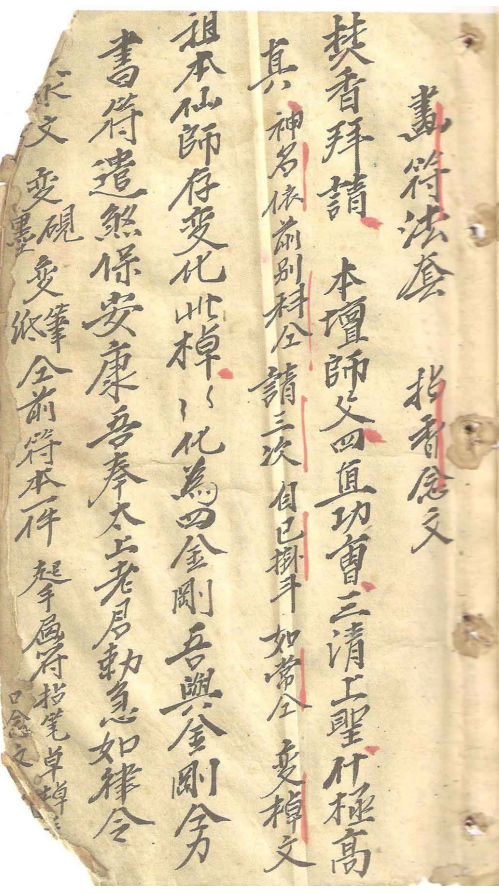 畫符法套　拈香念文
焚香拜請　本壇師父四直功曹三清上聖什極高
真　神名依前別科仝　請三次　自己掛斗　如常仝　变棹文
祖本仙師存变化此棹〻化為四金剛吾與金剛仝力
書符遣煞保安康吾奉太上老君勅急如律令
文　变硯　变筆　墨　紙　仝前符本一件　起手画符拈笔草棹　口念文